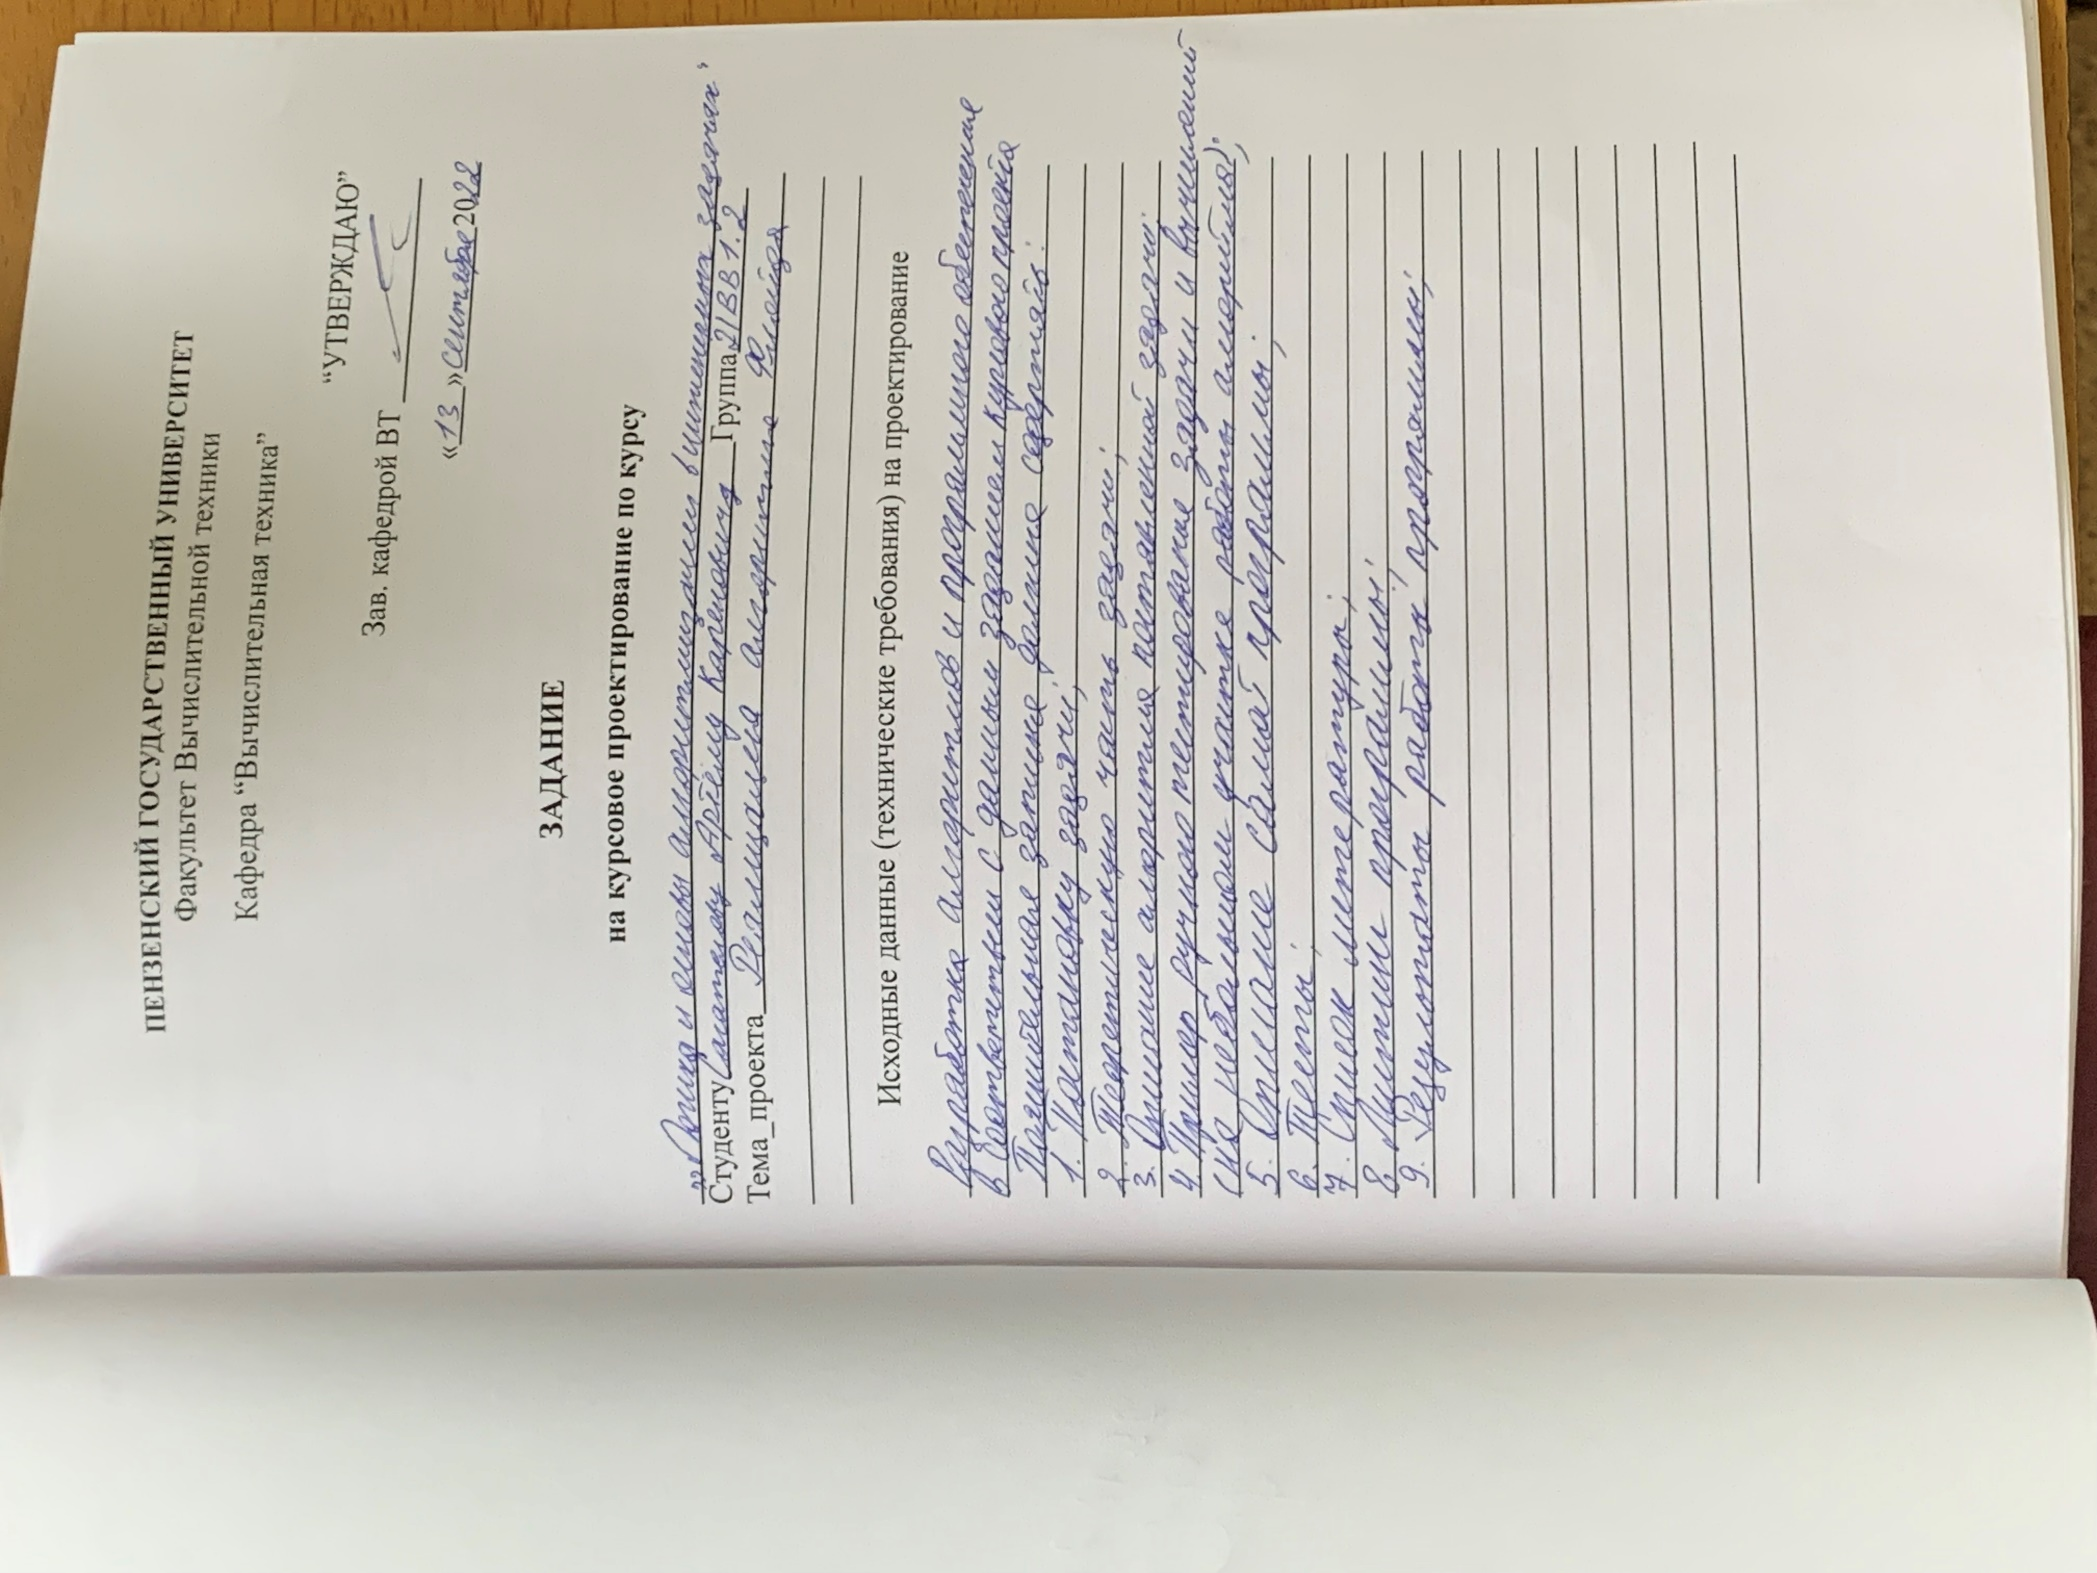 ПЕНЗЕНСКИЙ ГОСУДАРСТВЕННЫЙ УНИВЕРСИТЕТ
Факультет Вычислительной техники
Кафедра “Вычислительная техника”
“УТВЕРЖДАЮ”
Зав. кафедрой ВТ
«13» сентября 2022
ЗАДАНИЕ
на курсовое проектирование по курсу
„Логика и основы алгоритмизации в инженерных задачах“
Студенту Артёму Кареновичу Группа 21ВВ1.2
Тема проекта Реализация алгоритма Флойда
Исходные данные (технические требования) на проектирование
Разработка алгоритмов и программного обеспечения
в соответствии с данным заданием курсового проекта
Пояснительная записка должна содержать:
1. Постановку задачи;
2. Теоретическую часть задачи;
3. Описание алгоритма поставленной задачи;
4. Пример ручного тестирования задачи и вычислений
(на небольшом участке работы алгоритма);
5. Описание самой программы;
6. Тесты;
7. Список литературы;
8. Листинг программы;
9. Результаты работы программы;